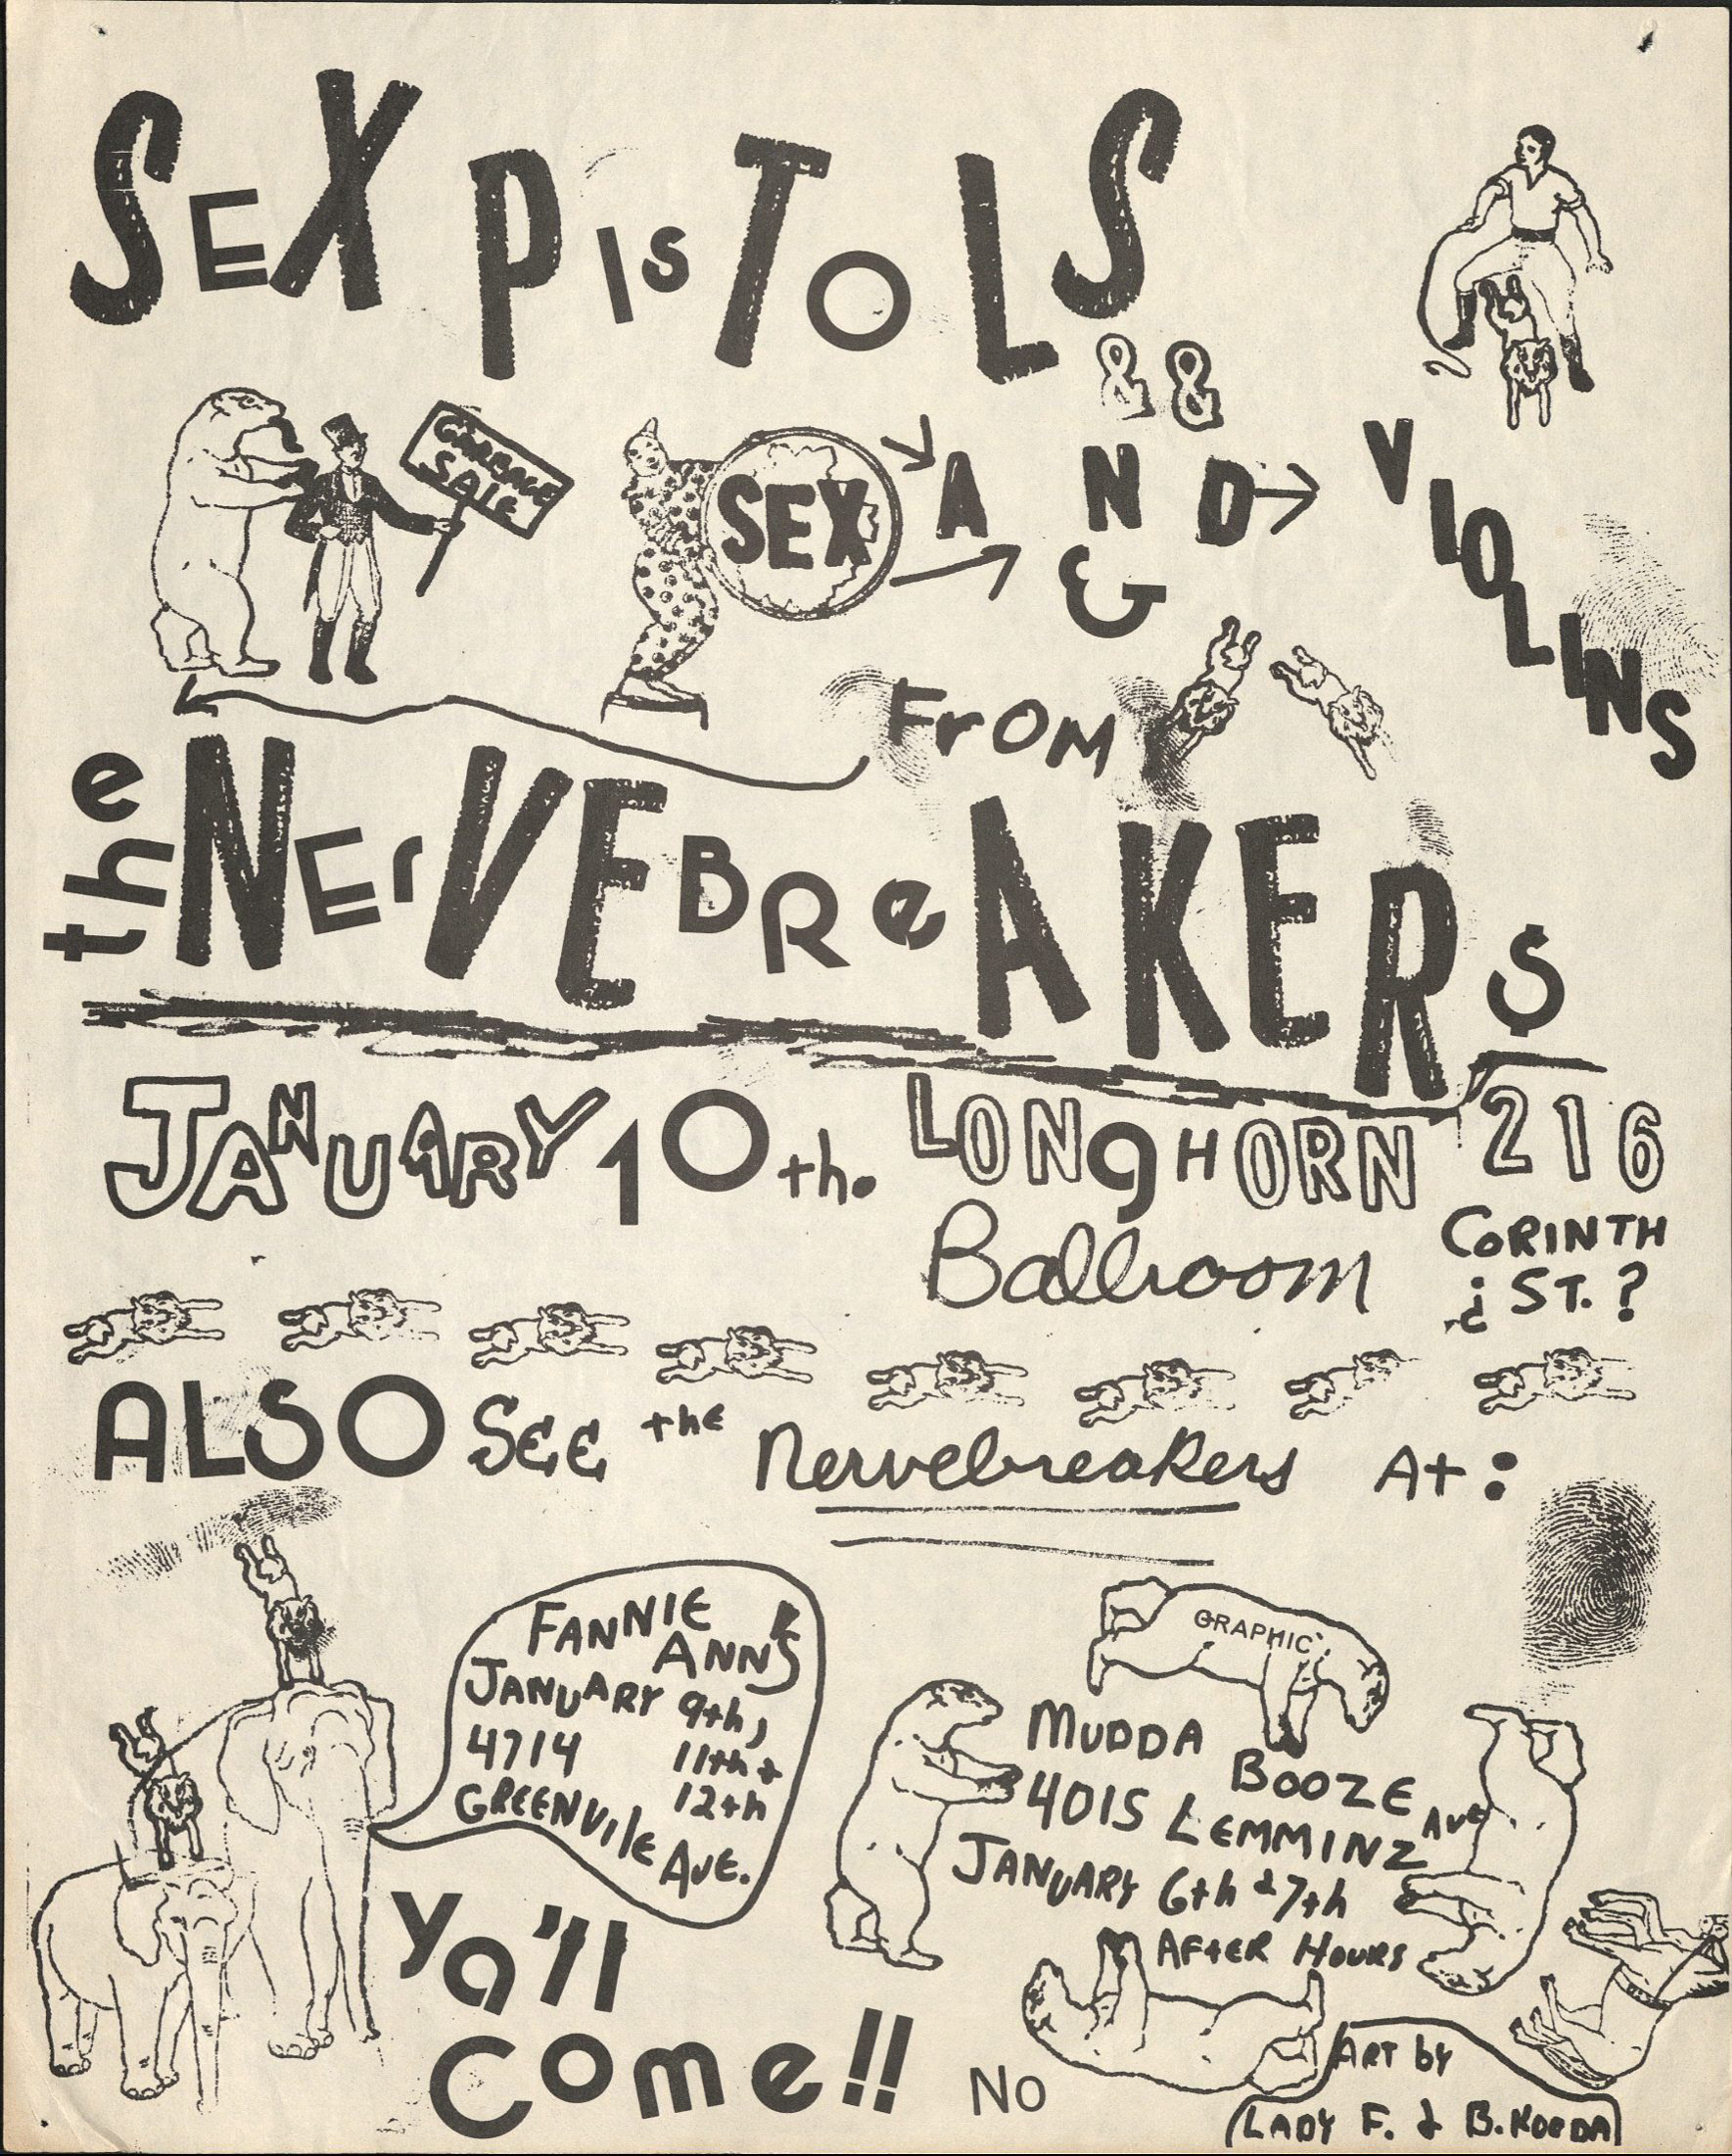 SEX PISTOLS
& &
GARBAGE
SALE
SEX
AND
&
VIOLINS
FrOM
the NErVEBReAKERS
JANUARY 10th. LONgHORN 216
Ballroom CORINTH
¿ ST. ?
ALSO SEE the Nervebreakers At:
FANNIE
ANN'S
JANUARY 9th,
4714 11th +
GREENVIlE 12th
AVE.
GRAPHIC
MUDDA
BOOZE
4015 LEMMINZ AVE
JANUARY 6th & 7th
AFtER HOURS
Ya'll
Come!!
NO
ART by
LADY F. & B.